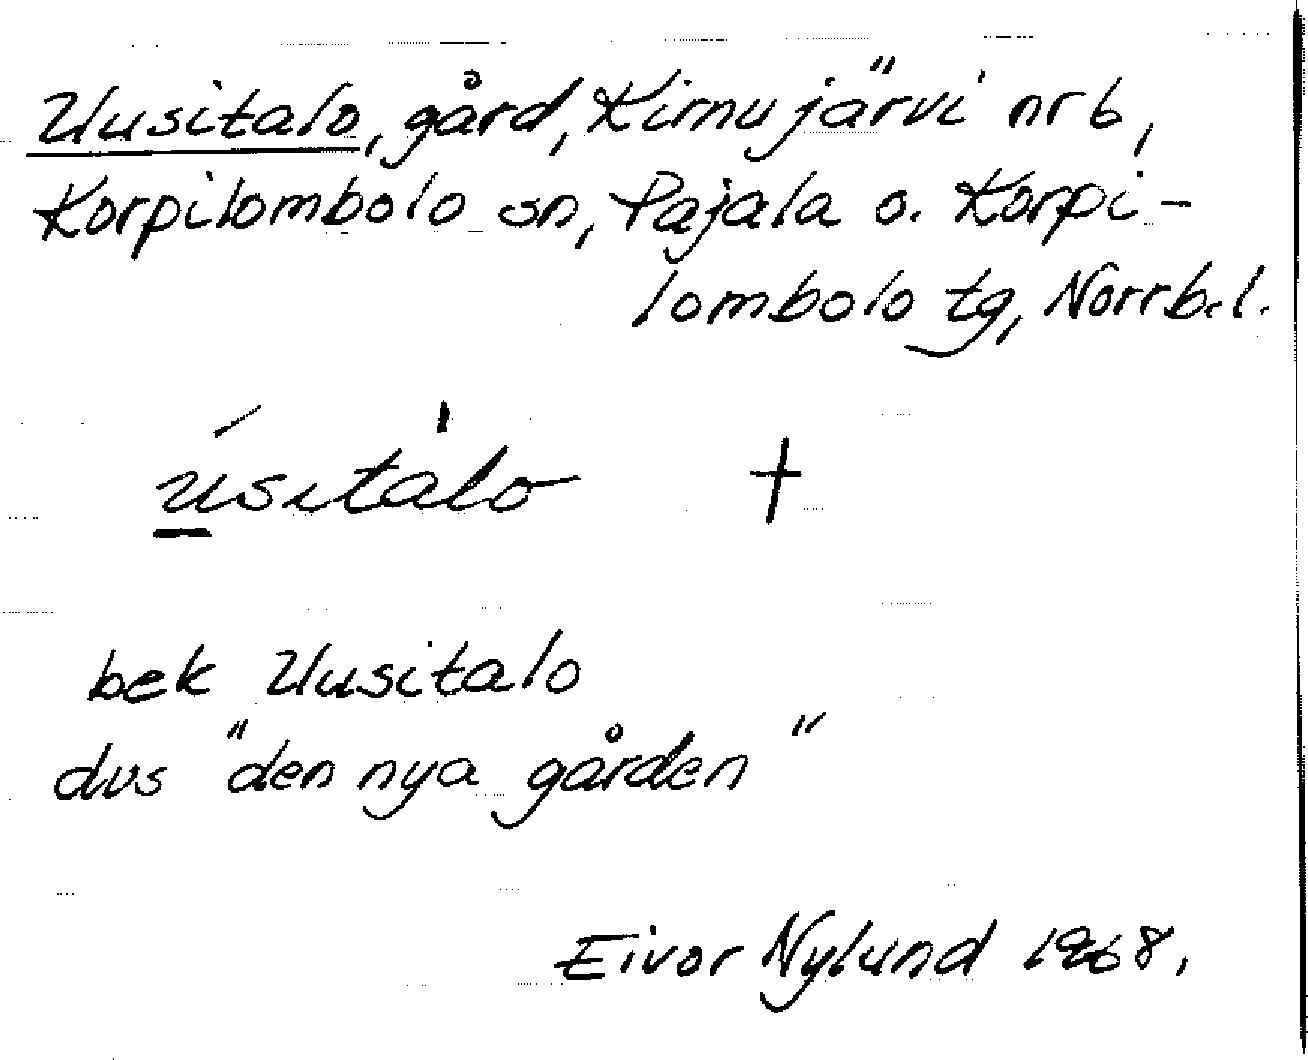 Uusitalo, gård, Kirnujärvi nr 6,
Korpilombolo sn, Pajala o. Korpi-
lombolo tg, Norrb.l.
ú̱sitàlo †
bek Uusitalo
dvs "den nya gården"
Eivor Nylund 1968.